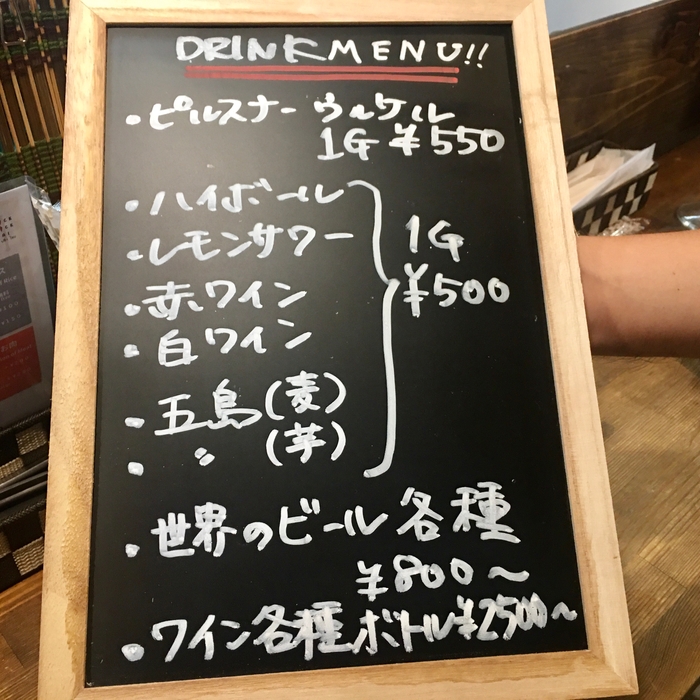 DRINK MENU!!
・ピルスナー ウルケル
1G ¥550
・ハイボール
・レモンサワー
・赤ワイン
・白ワイン
1G
¥500
・五島(麦)
・〃 (芋)
・世界のビール各種
¥800〜
・ワイン各種ボトル¥2500〜